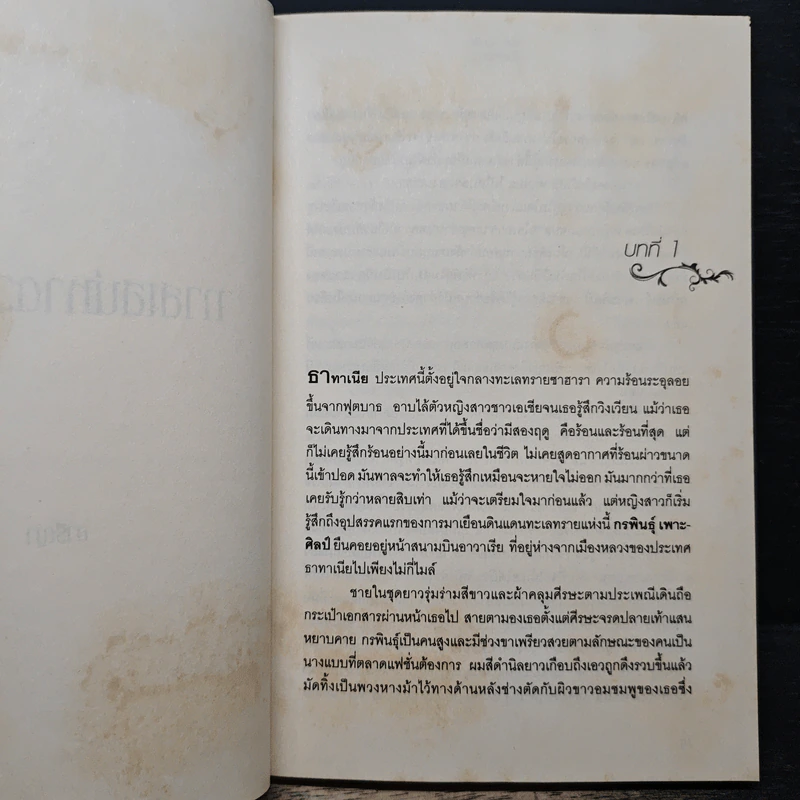 บทที่ 1
ธาทาเนีย ประเทศนี้ตั้งอยู่ใจกลางทะเลทรายซาฮารา ความร้อนระอุลอย
ขึ้นจากฟุตบาธ อาบไล้ตัวหญิงสาวชาวเอเชียจนเธอรู้สึกวิงเวียน แม้ว่าเธอ
จะเดินทางมาจากประเทศที่ได้ขึ้นชื่อว่ามีสองฤดู คือร้อนและร้อนที่สุด แต่
ก็ไม่เคยรู้สึกร้อนอย่างนี้มาก่อนเลยในชีวิต ไม่เคยสูดอากาศที่ร้อนผ่าวขนาด
นี้เข้าปอด มันพาลจะทำให้เธอรู้สึกเหมือนจะหายใจไม่ออก มันมากกว่าที่เธอ
เคยรับรู้กว่าหลายสิบเท่า แม้ว่าจะเตรียมใจมาก่อนแล้ว แต่หญิงสาวก็เริ่ม
รู้สึกถึงอุปสรรคแรกของการมาเยือนดินแดนทะเลทรายแห่งนี้ กรพินธุ์ เพาะ-
ศิลป์ ยืนคอยอยู่หน้าสนามบินอาวาเรีย ที่อยู่ห่างจากเมืองหลวงของประเทศ
ธาทาเนียไปเพียงไม่กี่ไมล์
ชายในชุดยาวรุ่มร่ามสีขาวและผ้าคลุมศีรษะตามประเพณีเดินถือ
กระเป๋าเอกสารผ่านหน้าเธอไป สายตามองเธอตั้งแต่ศีรษะจรดปลายเท้าแสน
หยาบคาย กรพินธุ์เป็นคนสูงและมีช่วงขาเพรียวสวยตามลักษณะของคนเป็น
นางแบบที่ตลาดแฟชั่นต้องการ ผมสีดำนิลยาวเกือบถึงเอวถูกดึงรวบขึ้นแล้ว
มัดทิ้งเป็นพวงหางม้าไว้ทางด้านหลังช่างตัดกับผิวขาวอมชมพูของเธอซึ่ง